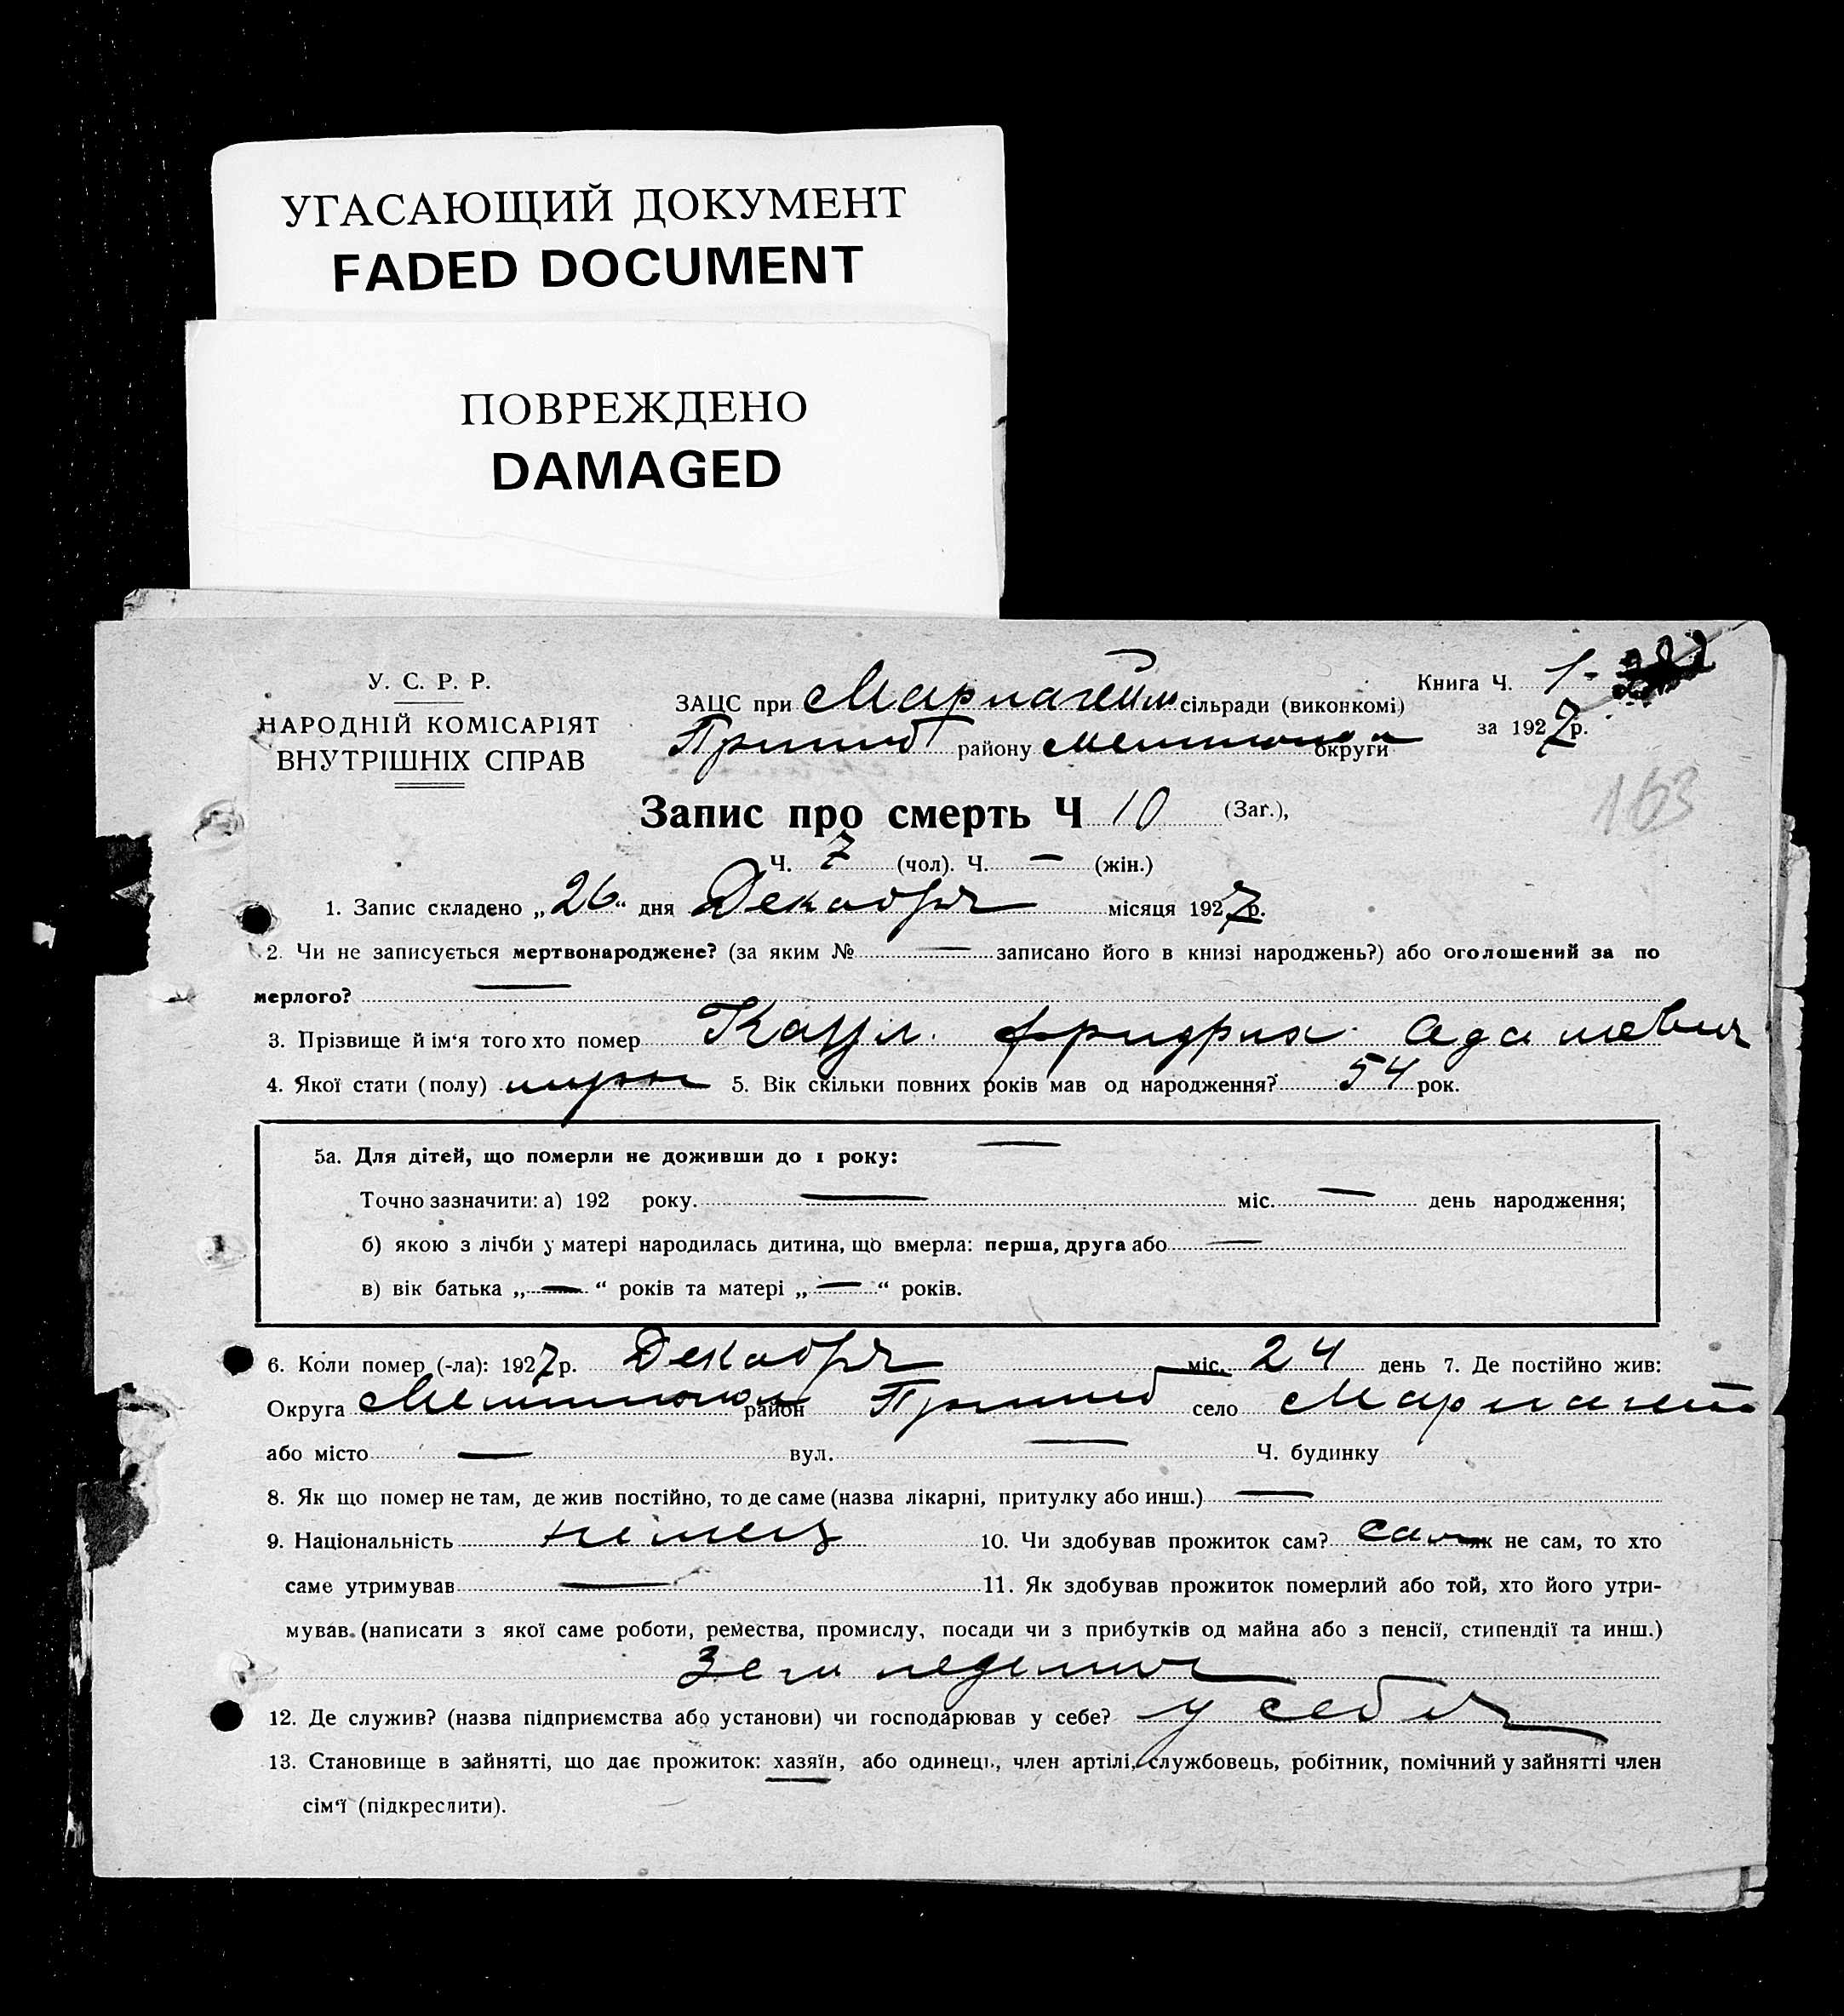 УГАСАЮЩИЙ ДОКУМЕНТ
FADED DOCUMENT
ПОВРЕЖДЕНО
DAMAGED
У. С. Р. Р.
НАРОДНІЙ КОМІСАРІЯТ
ВНУТРІШНІХ СПРАВ
ЗАЦС при сільради (виконкомі)
Пришиб району округи
Книга Ч. 1
за 1927 р.
163
Запис про смерть Ч 10 (Заг.),
Ч. 7 (чол). Ч. — (жін.)
1. Запис складено „26“ дня Декабря місяця 1927 р.
2. Чи не записується мертвонароджене? (за яким № — записано його в книзі народжень?) або оголошений за по
мерлого? —
3. Прізвище й ім'я того хто помер Фридрих Адамович
4. Якої стати (полу) 5. Вік скільки повних років мав од народження? 54 рок.
5а. Для дітей, що померли не доживши до 1 року: —
Точно зазначити: а) 192 року. — міс. — день народження;
б) якою з лічби у матері народилась дитина, що вмерла: перша, друга або —
в) вік батька „—“ років та матері „—“ років.
6. Коли помер (-ла): 1927 р. Декабря міс. 24 день 7. Де постійно жив:
Округа район Пришиб село
або місто — вул. — Ч. будинку
8. Як що помер не там, де жив постійно, то де саме (назва лікарні, притулку або инш.) —
9. Національність немец 10. Чи здобував прожиток сам? сам як не сам, то хто
саме утримував — 11. Як здобував прожиток померлий або той, хто його утри-
мував. (написати з якої саме роботи, ремества, промислу, посади чи з прибутків од майна або з пенсії, стипендії та инш.)
12. Де служив? (назва підприємства або установи) чи господарював у себе? у себя
13. Становище в зайнятті, що дає прожиток: хазяїн, або одинець, член артілі, службовець, робітник, помічний у зайнятті член
сім'ї (підкреслити).